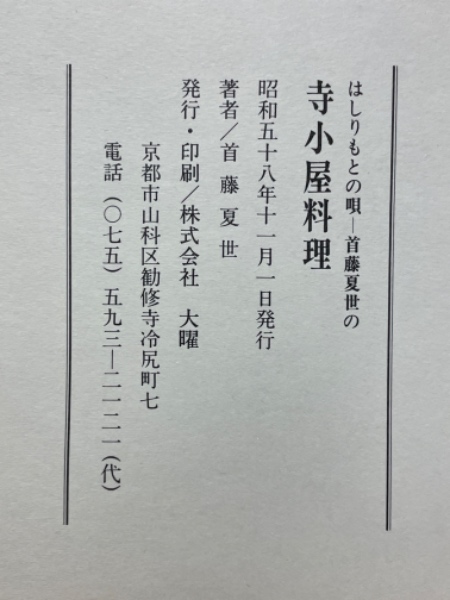 はしりもとの唄―首藤夏世の
寺小屋料理
昭和五十八年十一月一日発行
著者／首藤夏世
発行・印刷／株式会社 大曜
京都市山科区勧修寺冷尻町七
電話（〇七五）五九三―二一二一（代）